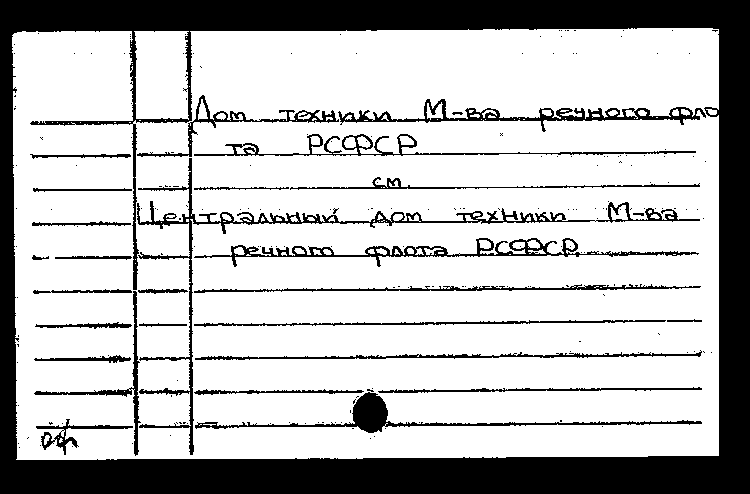 Дом техники М-ва речного фло
та РСФСР
см.
Центральный дом техники М-ва
речного флота РСФСР